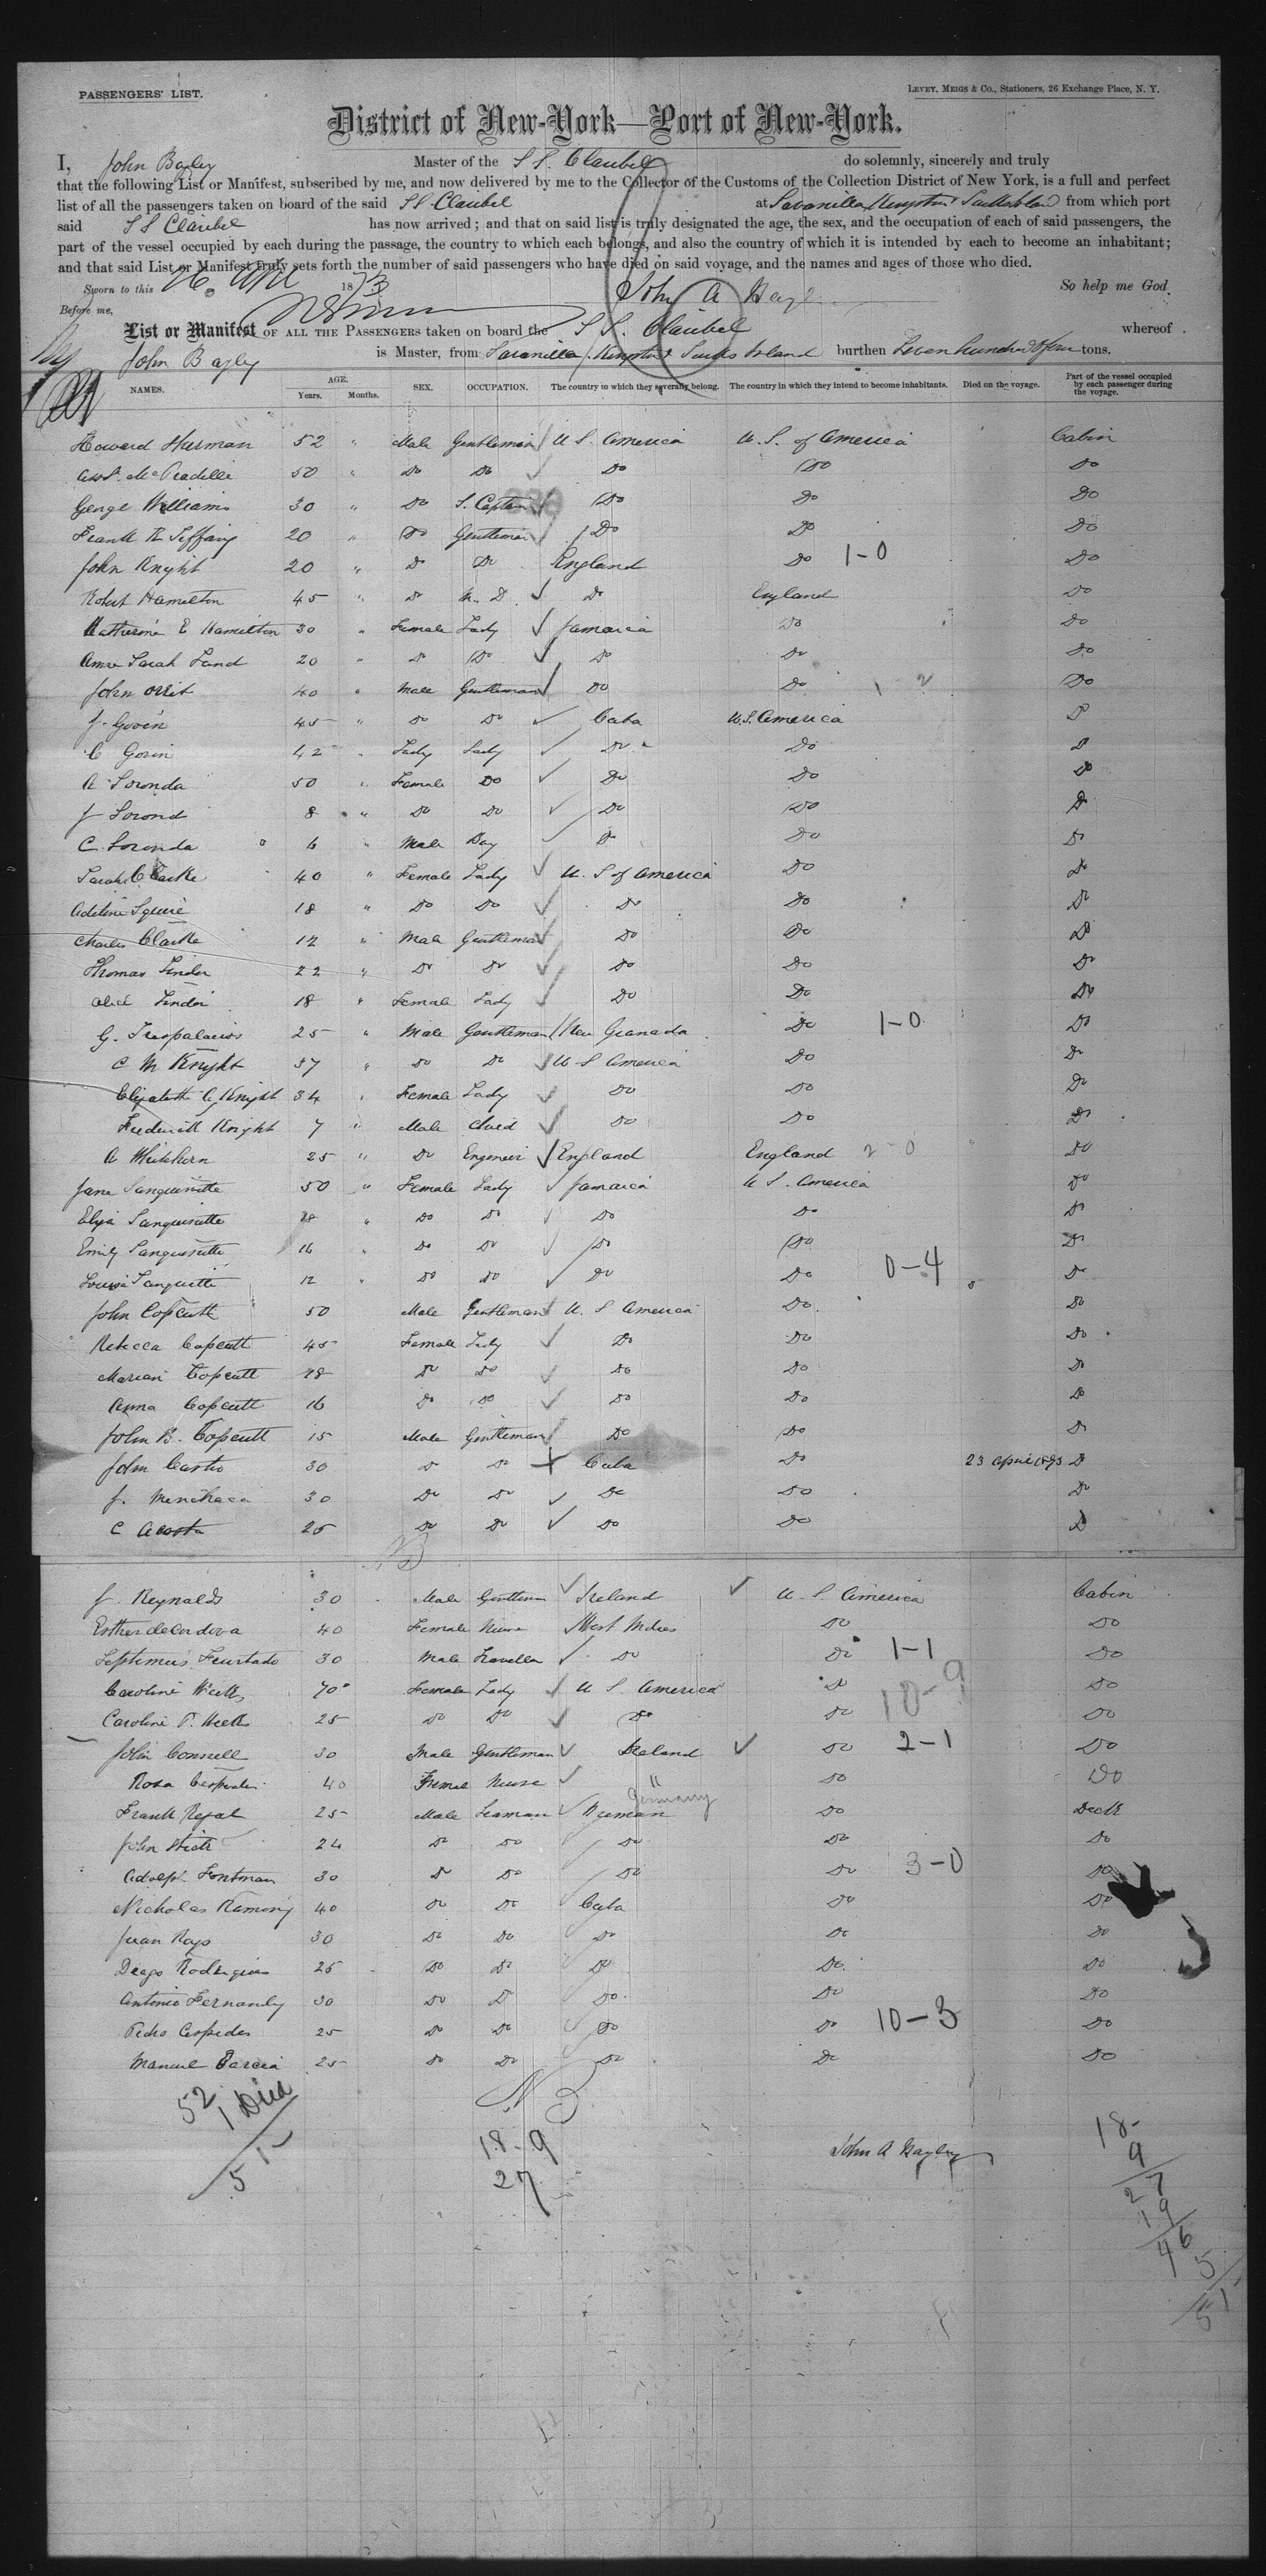 PASSENGERS' LIST.
LEVEY, MEIGS & Co., Stationers, 26 Exchange Place, N. Y.
District of New-York—Port of New-York.
I, John Bagley Master of the S S. Claribel do solemnly, sincerely and truly
that the following List or Manifest, subscribed by me, and now delivered by me to the Collector of the Customs of the Collection District of New York, is a full and perfect
list of all the passengers taken on board of the said SS Claribel at Savanilla Kingston from which port
said S S Claribel has now arrived; and that on said list is truly designated the age, the sex, and the occupation of each of said passengers, the
part of the vessel occupied by each during the passage, the country to which each belongs, and also the country of which it is intended by each to become an inhabitant;
and that said List or Manifest truly sets forth the number of said passengers who have died on said voyage, and the names and ages of those who died.
Sworn to this 26 1873 John A So help me God.
Before me,
List or Manifest OF ALL THE PASSENGERS taken on board the S S. Claribel whereof
John Bagley is Master, from Savanilla Kingston Island burthen Seven hundred & four tons.
NAMES. AGE. Years. Months. SEX. OCCUPATION. The country to which they severally belong. The country in which they intend to become inhabitants. Died on the voyage. Part of the vessel occupied by each passenger during the voyage.
Howard Sherman 52 " Male Gentleman U S. America U. S. of America Cabin
50 " Do Do Do Do Do
George Williams 30 " Do S. Captain Do Do Do
Frank 20 " Do Gentleman Do Do Do
John Knight 20 " Do Do England Do 1-0 Do
Robert Hamilton 45 " Do M. D. Do England Do
Katherine E Hamilton 30 " Female Lady Jamaica Do Do
Sarah 20 " Do Do Do Do Do
John Orrit 40 " Male Gentleman Do Do 1-2 Do
J. Govin 45 " Do Do Cuba U.S. America Do
C Govin 42 " Lady Lady Do Do Do
A Loronda 50 " Female Do Do Do Do
J Lorond 8 " Do Do Do Do Do
C. Loronda 6 " Male Boy Do Do Do
Sarah Clarke 40 " Female Lady U. S of America Do Do
Adeline Squire 18 " Do Do Do Do Do
Charles Clarke 12 " Male Gentleman Do Do Do
Thomas 22 " Do Do Do Do Do
18 " Female Lady Do Do Do
G. Trespalacios 25 " Male Gentleman New Granada Do 1-0 Do
C M Knight 37 " Do Do U S America Do Do
Elizabeth Knight 34 " Female Lady Do Do Do
Frederick Knight 7 " Male Child Do Do Do
A 25 " Do Engineer England England 2-0 Do
Jane Sanguinette 50 " Female Lady Jamaica U S. America Do
Eliza Sanguinette 18 " Do Do Do Do Do
Emily Sanguinette 16 " Do Do Do Do Do
Louisa 12 " Do Do Do Do 0-4 Do
John Copcutt 50 Male Gentleman U. S America Do Do
Rebecca Copcutt 45 Female Lady Do Do Do
Marian Copcutt 18 Do Do Do Do Do
Anna Copcutt 16 Do Do Do Do Do
John B. Copcutt 15 Male Gentleman Do Do Do
John Castro 30 Do Do Cuba Do 23 April 1873 Do
J. Menchaca 30 Do Do Do Do Do
C Acosta 25 Do Do Do Do Do
J. Reynolds 30 Male Gentleman Ireland U. S America Cabin
Esther deCordova 40 Female Nurse West Indies Do Do
Septimus Feurtado 30 Male Do Do 1-1 Do
Caroline 70 Female Lady U S. America Do 10-9 Do
Caroline T. 25 Do Do Do Do Do
John Connell 30 Male Gentleman Ireland Do 2-1 Do
Rosa 40 Female Nurse " Do Do
Germany
Frank 25 Male Seaman Bremen Do Deck
John 24 Do Do Do Do Do
Adolph 30 Do Do Do Do 3-0 Do
Nicholas 40 Do Do Cuba Do Do
Juan 30 Do Do Do Do Do
Diego 25 Do Do Do Do Do
Antonio 30 Do Do Do Do Do
Pedro Cespedes 25 Do Do Do Do 10-3 Do
Manuel Garcia 25 Do Do Do Do Do
52
1 Died
51
18-9
27
John A Bagley
18
9
27
19
46
5
51